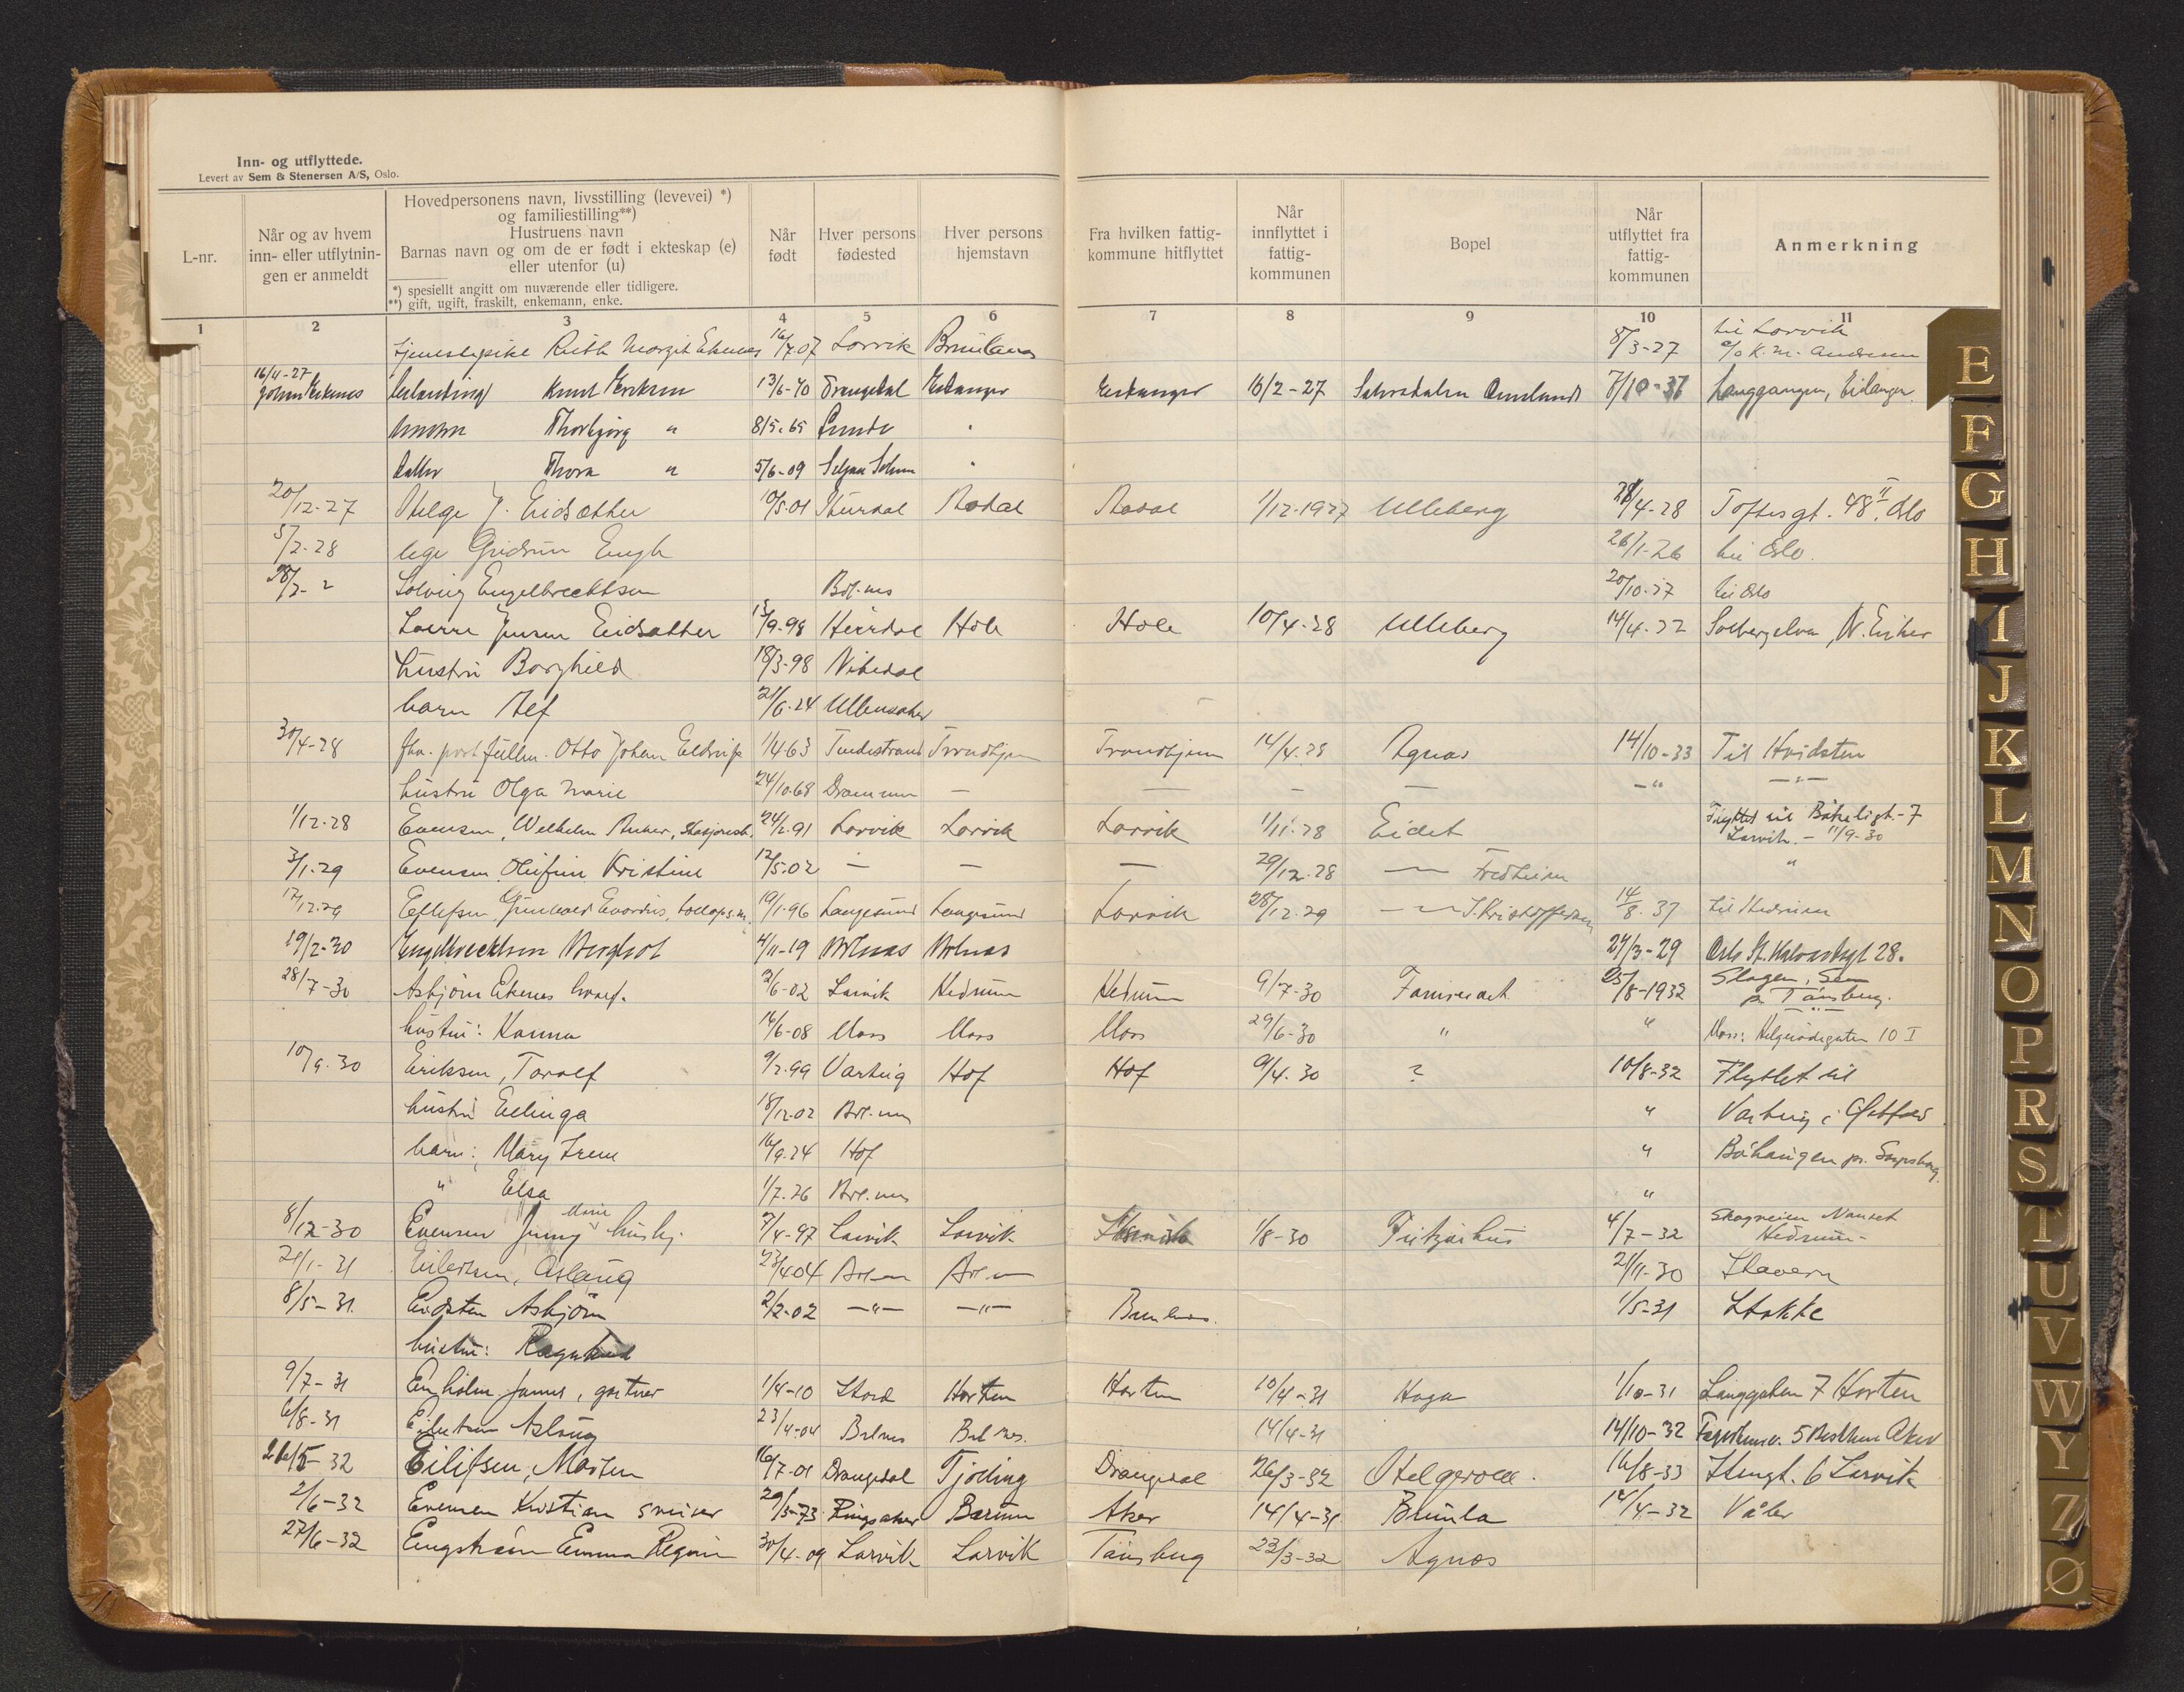 Inn- og utflyttede.
Levert av Sem & Stenersen A/S, Oslo.
L-nr. Når og av hvem inn- eller utflytnin- gen er anmeldt Hovedpersonens navn, livsstilling (levevei) *) og familiestilling**) Hustruens navn Barnas navn og om de er født i ekteskap (e) eller utenfor (u) *) spesiellt angitt om nuværende eller tidligere. **) gift, ugift, fraskilt, enkemann, enke. Når født Hver persons fødested Hver persons hjemstavn Fra hvilken fattig- kommune hitflyttet Når innflyttet i fattig- kommunen Bopel Når utflyttet fra fattig- kommunen Anmerkning
1 2 3 4 5 6 7 8 9 10 11
tjenestepike Ruth Margit Ekenes 16/7.07 Larvik Brunlanes 8/3-27 til Larvik c/o K. M. Andersen
16/4-27 Johan Ekenes Knut Eriksen 13/6-70 Drangedal Eidanger Eidanger 16/2-27 7/10-37 Langgangen, Eidanger
Thorbjørg " 8/5.65 Lunde "
datter Thora " 5/6-09 "
20/12-27 Helge J. Eidsæther 10/5.01 Hurdal Aadal Aadal 1/12.1927 Ulleberg 28/4-28 Toftesgt. 48 II, Oslo
5/2-28 lege Gudrun Engh 26/1-26 til Oslo.
Solveig Engelbrechtsen Brl.nes 20/10-27 til Oslo
Sverre Jensen Eidsæther 15/9-98 Hurdal Hole Hole 10/4-28 Ulleberg 14/4-32 Solbergelva, N. Eiker
hustru Borghild 18/3-98 Nittedal
barn Alf 21/6-24 Ullensaker
30/4-28 fhv. postfullm. Otto Johan Eldrup 1/4-63 Tvedestrand Trondhjem Trondhjem 14/4.28 Agnes 14/10-33 Til Hvidsten
hustru Olga Marie 24/10.68 Drammen — — — — -"- -"-
1/12-28 Evensen, Wilhelm Anker, 24/2-91 Larvik Larvik Larvik 1/11-28 Eidet Flyttet til Bøkeligt.-7 Larvik.- 11/9-30
3/1-29 Evensen Olufine Kristine 12/5-02 — — — 29/12-28 — Fredheim "
17/12-29 Ellefsen, Gunvald Evardus, 19/1-96 Langesund Langesund Larvik 28/12-29 — J. Kristoffersen 14/8-37 til Hedrum
19/2-30 Engelbrechtsen Bergliot 4/11-19 Brlnes Brlnes 24/3-29 Oslo St. Halvardsgt 28.
28/7-30 Asbjørn Ekenes 3/6-02 Larvik Hedrum Hedrum 9/7-30 25/8-1932 Slagen, Sem p. Tønsberg.
hustru: Hanna 14/6-08 Moss Moss Moss 29/6-30 " " Moss: Helgerødgaten 10 I
10/9-30 Eriksen, Toralf 9/2-99 Varteig Hof Hof 9/4.30 ? 10/8-32 Flyttet til
hustru Ellinga 18/12-02 Brl.nes " Varteig i Østfold
barn: Mary Irene 16/9-24 Hof " Bøhaugen pr. Sarpsborg
" Elsa 1/7-26 Brl.nes "
8/12-30 Evensen Jenny Marie husbj. 7/4-97 Larvik Larvik 1/8-30 Fritzøehus 4/7-32 Skogveien Nanset Hedrum-
21/1-31 Eilertsen, Aslaug 23/4-04 Brl.nes Brl.nes 21/11-30 Stavern
8/5-31 Eidsten Asbjørn 2/2-02 -"- -"- Brunlanes. 1/5-31 Stokke
hustru: Ragnhild
9/7-31 Enholm James, gartner 1/4-10 Stord Horten Horten 10/4-31 Haga 1/10-31 Langgaten 7 Horten
6/8-31 Eilertsen Aslaug 23/4-04 Brlnes Brlnes. 14/4-31 14/10-32 5 Bestum Aker
26/5-32 Eilifsen, Morten 16/7-01 Drangedal Tjølling Drangedal 26/3-32 Helgeroa. 16/8-33 Stengt. 6 Larvik
2/6-32 Evensen Kristian sveiser 29/5-73 Ringsaker Bærum Aker 14/4-31 Brunla 14/4-32 Våler
27/6-32 Engstrøm Emma Regine 30/4-09 Larvik Larvik Tønsberg 23/3-32 Agnes
E
F
G
H
I
J
K
L
M
N
O
P
R
S
T
U
V
W
Y
Z
Ø